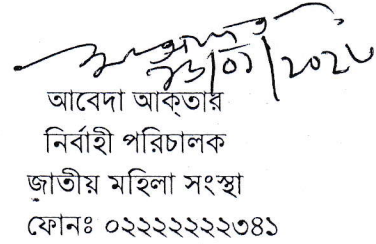 আবেদা আক্তার
নির্বাহী পরিচালক
জাতীয় মহিলা সংস্থা
ফোনঃ ০২২২২২২২৩৪১